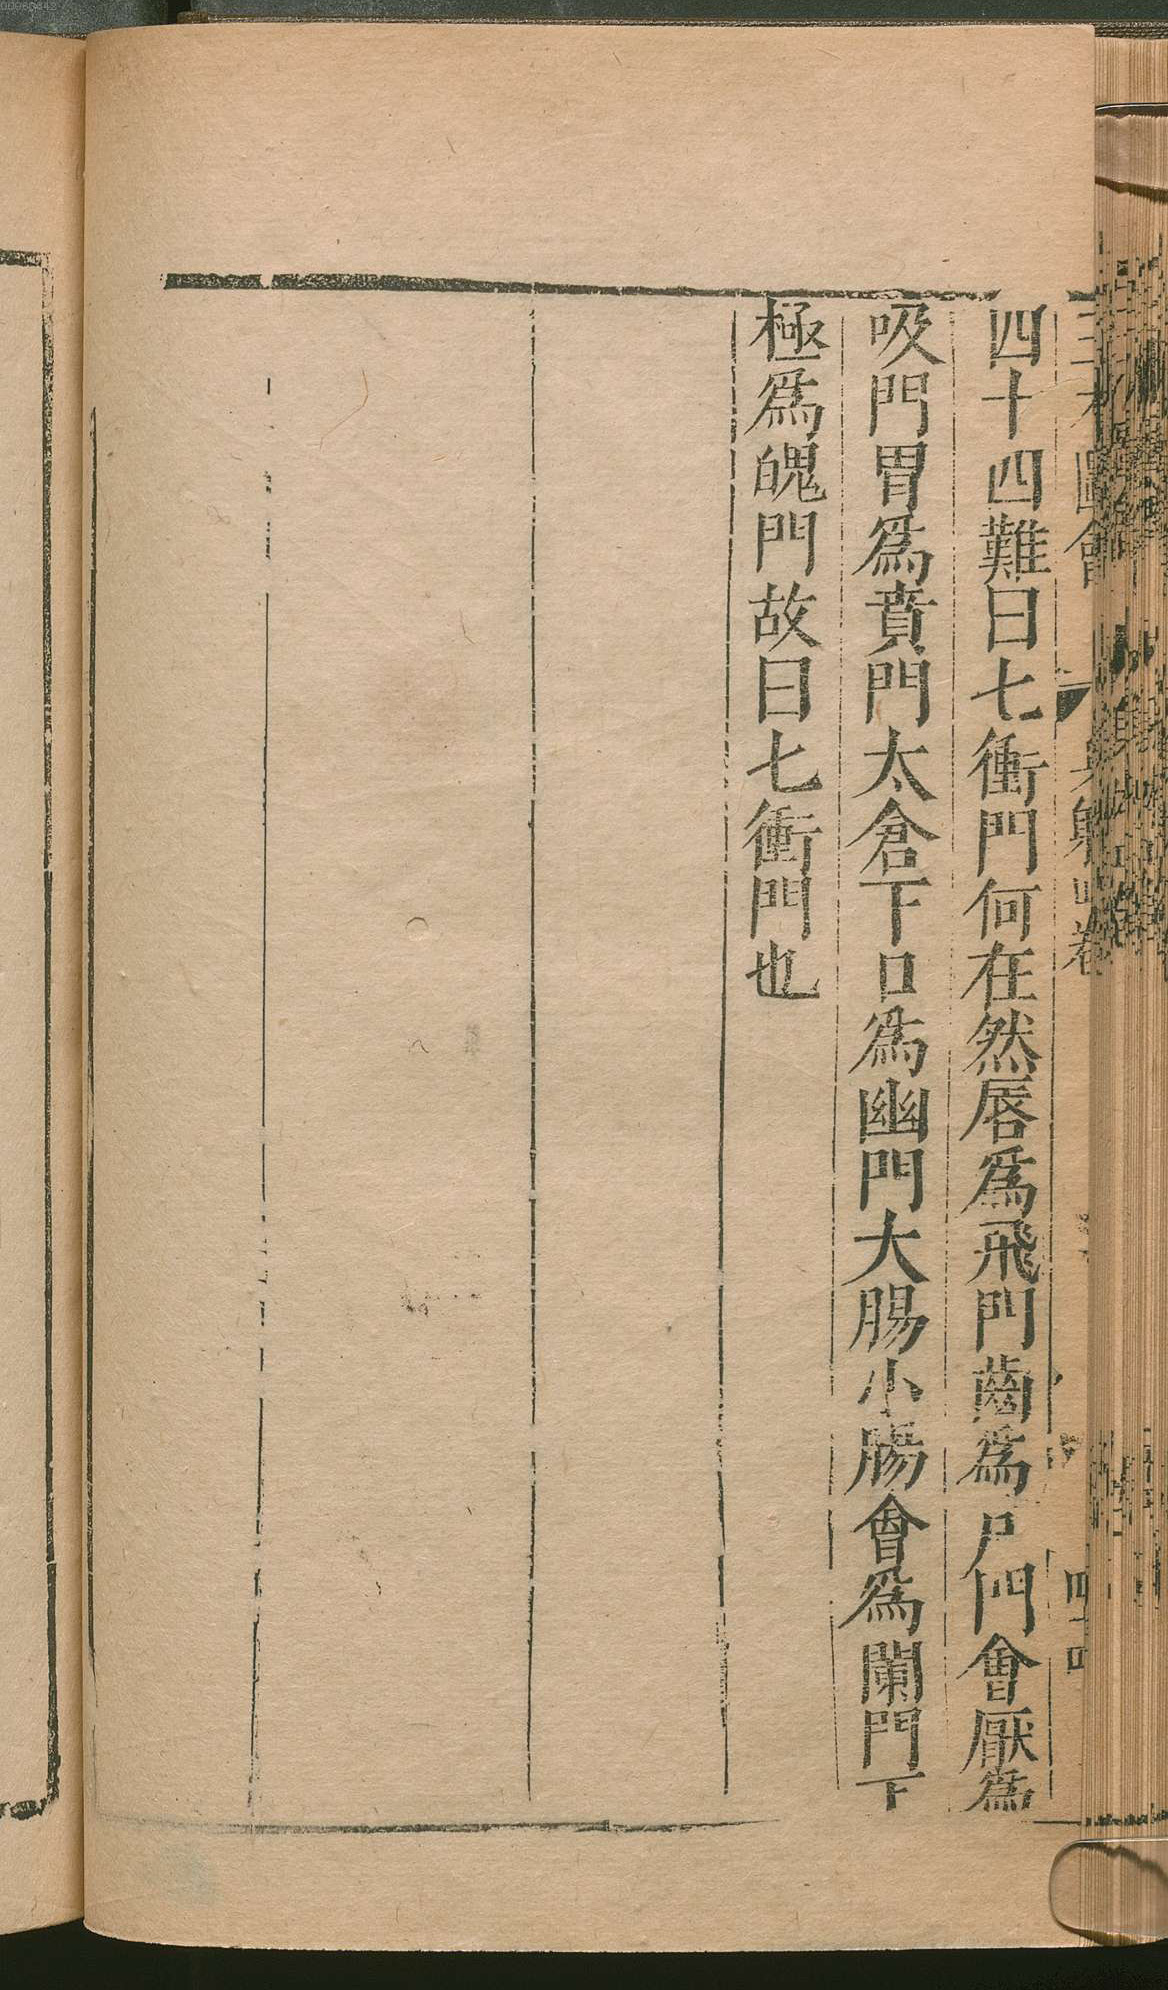 四十四難曰七衝門何在然唇爲飛門齒爲戶門會厭爲
吸門胃爲賁門太倉下口爲幽門大腸小腸會爲闌門下
極爲魄門故曰七衝門也